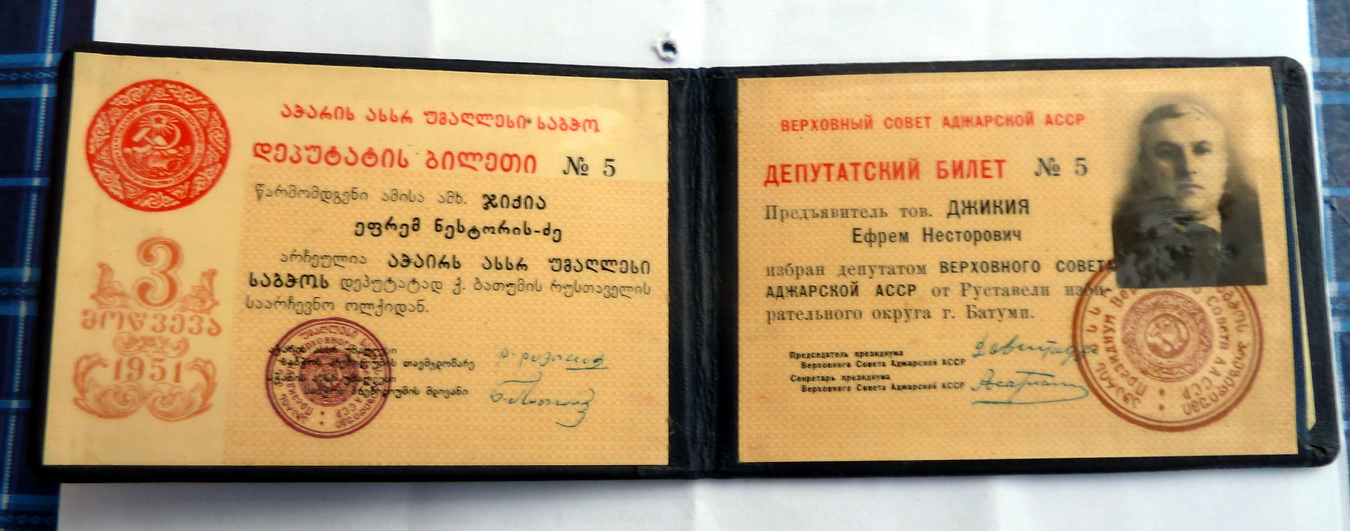 აჭარის ასსრ უმაღლესი საბჭო
დეპუტატის ბილეთი № 5
წარმომდგენი ამისა ამხ. ჯიქია
ეფრემ ნესტორის-ძე
არჩეულია აჭაირს ასსრ უმაღლესი
საბჭოს დეპუტატად ქ. ბათუმის რუსთაველის
საარჩევნო ოლქიდან.
3
მოწვევა
1951
თავმჯდომარე
მდივანი
ВЕРХОВНЫЙ СОВЕТ АДЖАРСКОЙ АССР
ДЕПУТАТСКИЙ БИЛЕТ № 5
Предъявитель тов. ДЖИКИЯ
Ефрем Несторович
избран депутатом ВЕРХОВНОГО СОВЕТА
АДЖАРСКОЙ АССР от Руставели изби-
рательного округа г. Батуми.
Председатель президиума
Верховного Совета Аджарской АССР
Секретарь президиума
Верховного Совета Аджарской АССР